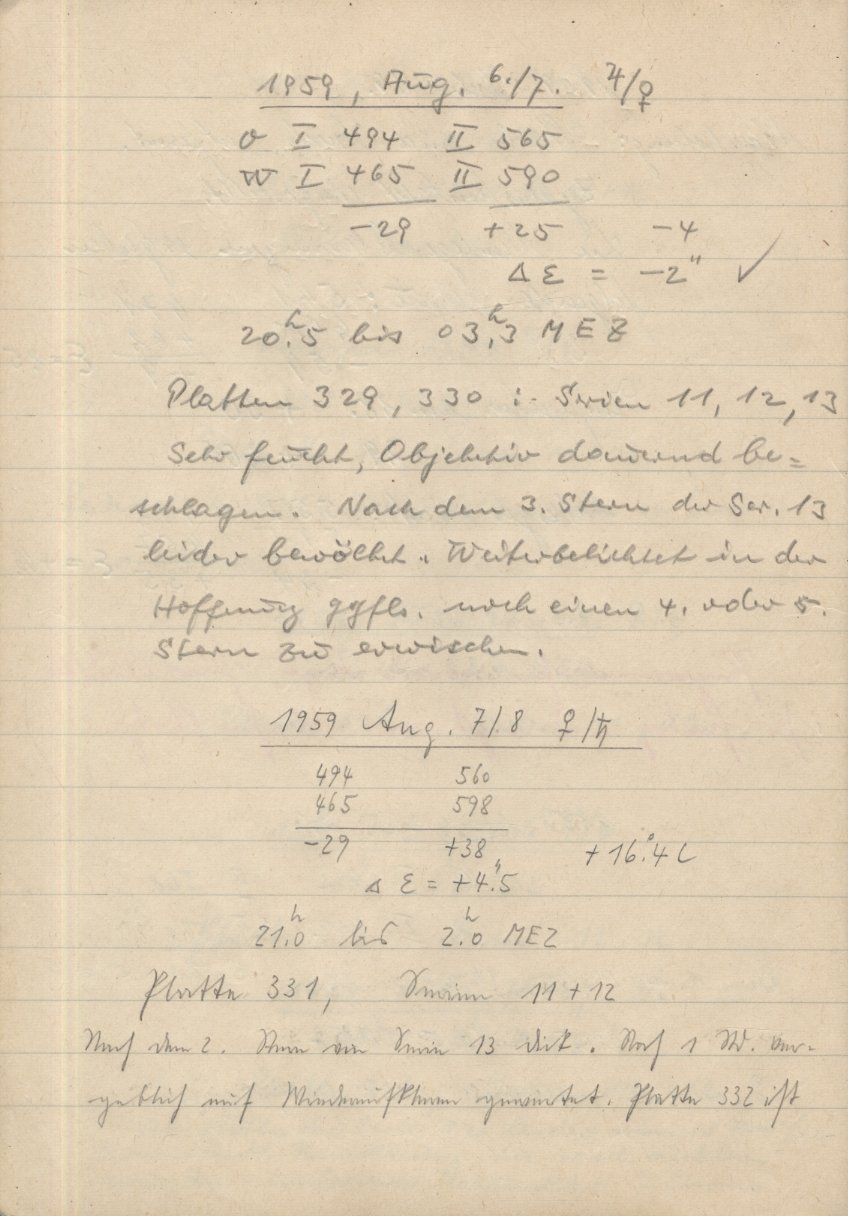 1959, Aug. 6./7. ♃/♀
O I 494 II 565
W I 465 II 590
-29 +25 -4
Δ ε = -2" ✓
20.ʰ5 bis 03.ʰ3 MEZ
Platten 329, 330 :- Serien 11, 12, 13
Sehr feucht, Objektiv dauernd be=
schlagen. Nach dem 3. Stern der Ser. 13
leider bewölkt. Weiterbelichtet in der
Hoffnung ggfls. noch einen 4. oder 5.
Stern zu erwischen.
1959 Aug. 7/8 ♀/♄
494 560
465 598
-29 +38 +16.°4 C
Δ ε = +4."5
21.ʰ0 bis 2.ʰ0 MEZ
Platte 331, Serien 11+12
Nach dem 2. Stern von Serie 13 dick. Noch 1 Std. ver-
geblich auf Wiederaufklaren gewartet. Platte 332 ist